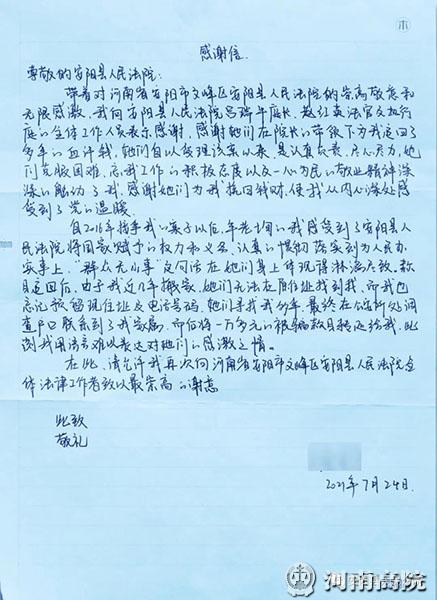 感谢信
尊敬的安阳县人民法院:
带着对河南省安阳市文峰区安阳县人民法院的崇高敬意和
无限感激,我向安阳县人民法院吕瑞平庭长、赵红英法官及执行
庭的全体工作人员表示感谢,感谢她们在院长的带领下为我追回了
多年的血汗钱,她们自从受理该案以来,是认真负责、尽心尽力,她
们克服困难,忘我工作的积极态度以及一心为民的敬业精神深
深的触动了我,感谢她们为我挽回钱财,使我从内心深处感
受到了党的温暖。
自2016年接手我的案子以后,年老的我感受到了安阳县人
民法院将国家赋予的权力和义务,认真的贯彻落实到为人民办
实事上。"群众无小事"这句话在她们身上体现得淋漓尽致。款
目追回后,由于我近几年搬家,她们无法在原住址找到我,而我也
忘记预留现住址及电话号码,她们寻找我多年,最终在派出所处调
查户口联系到了我家属,而后将一万多元的被骗款目转还给我,此
刻我用语言难以表达对她们的感激之情。
在此,请允许我再次向河南省安阳市文峰区安阳县人民法院全
体法律工作者致以最崇高的谢意
此致
敬礼
2021年7月24日.
河南高院